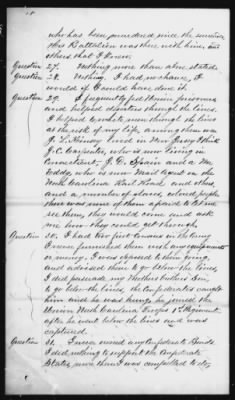 who has been murdered since the surrender
this Battalion was then with him, and
others that I know.
Question 27. Nothing more than above stated.
Question 28. Nothing. I had no chance, I
would if I could have done it.
Question 29. I frequently fed Union prisoners
and helped deserters through the lines,
I helped to make men through the lines
at the risk of my life, among them was
J. L. Kinsey lived in New Jersey I think
J. C. Carpenter, who is now living in
Connecticut, J. D. Spain and a Mr
Eddy who is now Mail agent on the
North Carolina Rail Road and others.
and a number of slaves, colored people
there was none of them afraid to let me
see them, they would come and ask
me how they could get through.
Question 30. I had two first Cousins in the Army
I never furnished them with any equipments
or money. I was opposed to their going,
and advised them to go below the lines,
I did persuade my Mothers Brothers Son,
to go below the lines, the Confederates caught
him and he was hung, he joined the
Union North Carolina Troops 1st Regiment
after he went below the lines and was
captured.
Question 31. I never owned any Confederate Bonds
I did nothing to support the Confederate
States more than I was compelled to do,